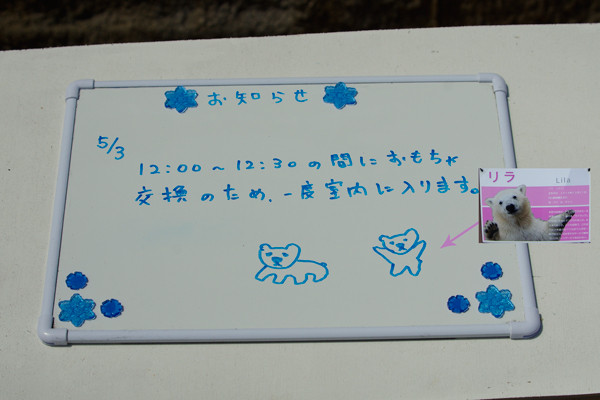 お知らせ
5/3
12:00～12:30の間におもちゃ
交換のため、一度室内に入ります。
リラ
Lila